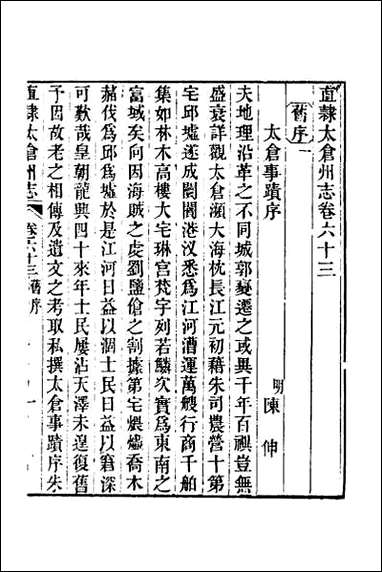 直隸太倉州志卷六十三
舊序
太倉事蹟序
明 陳伸
夫地理沿革之不同城郭變遷之或異千年百禩豈無
盛衰詳觀太倉瀕大海枕長江元初藉朱司農營卜第
宅邱墟遂成闤闠港汊悉為江河漕運萬艘行商千舶
集如林木高樓大宅琳宮梵宇列若鱗次實為東南之
富域矣向因海賊之虔劉鹽傖之割據第宅煨燼喬木
赭伐爲邱爲墟於是江河日益以涸士民日益以窘深
可歎哉皇朝龍興四十來年士民屢沾天澤未遑復舊
予因故老之相傳及遺文之考取私撰太倉事蹟序朱
直隸太倉州志 卷六十三 舊序 一